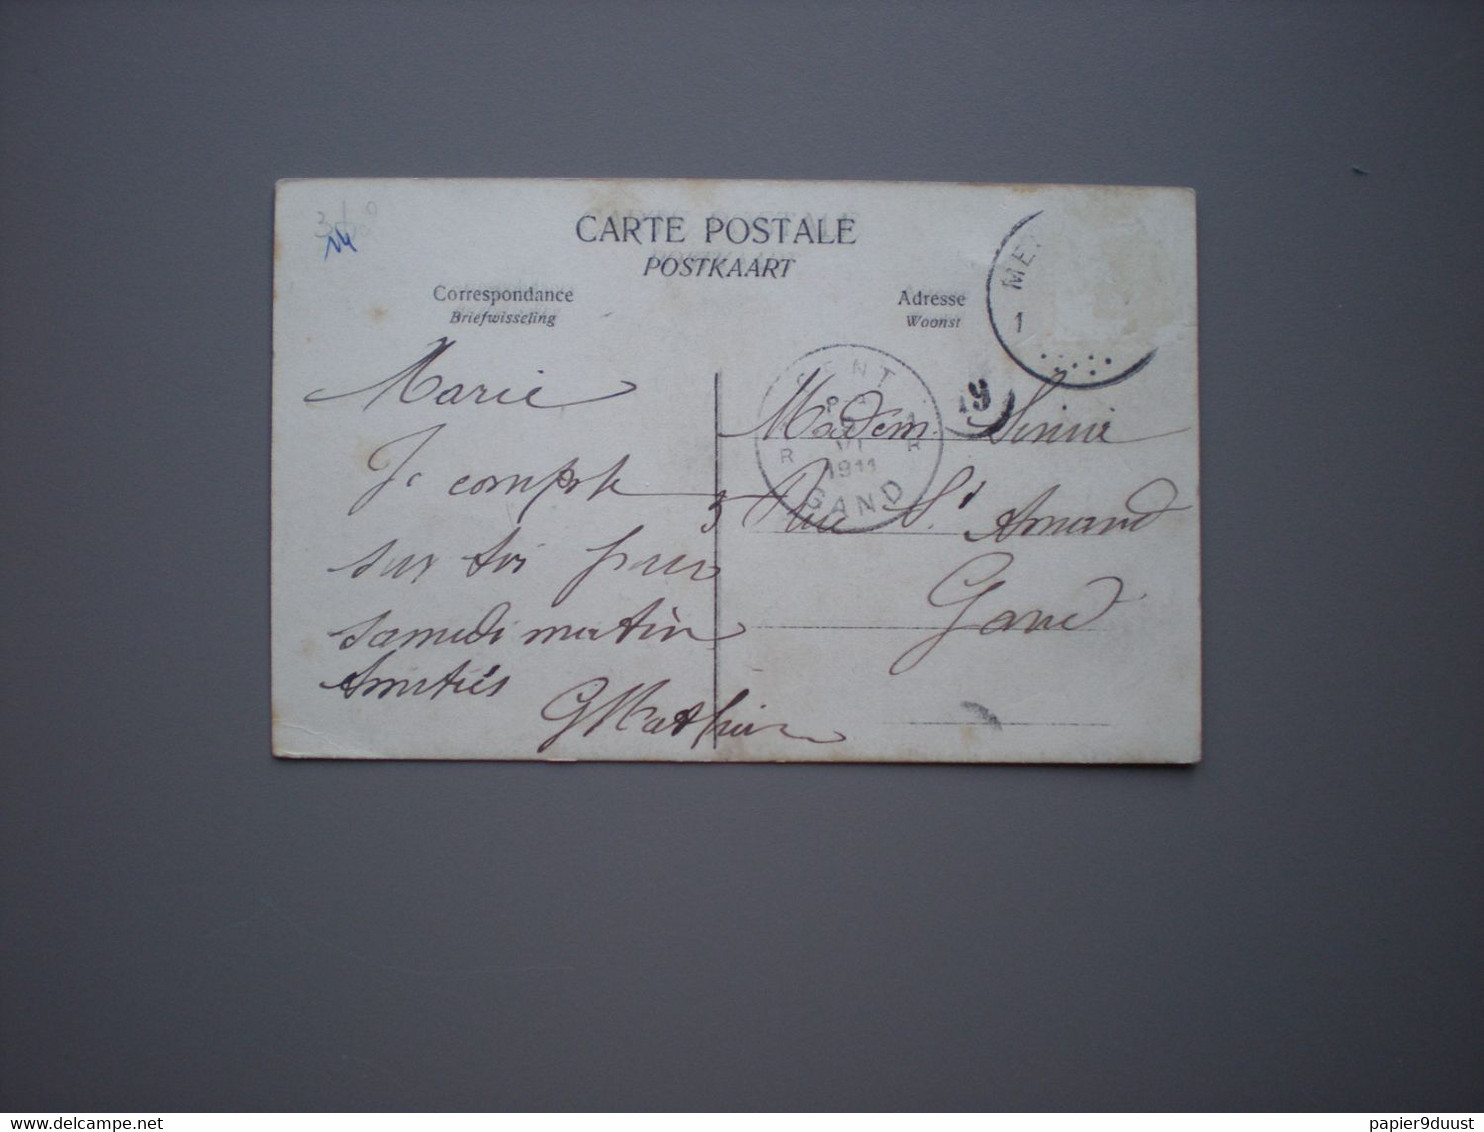 CARTE POSTALE
POSTKAART
Correspondance
Briefwisseling
Adresse
Woonst
1
GENT
R R
1911
GAND
19
Marie
Je compte
sur toi pour
samedi matin
Amitiés
GMathieu
Madem.
3 Rue St Amand
Gand
delcampe.net
papier9duust